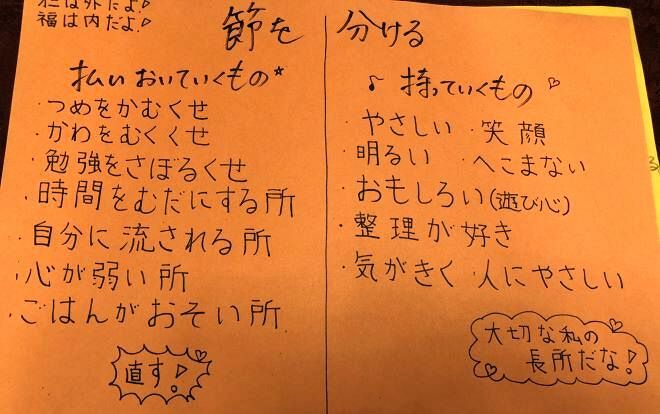 は外だよ!
福は内だよ!
節を 分ける
払いおいていくもの
・つめをかむくせ
・かわをむくくせ
・勉強をさぼるくせ
・時間をむだにする所
・自分に流される所
・心が弱い所
・ごはんがおそい所
直す!
♪ 持っていくもの
・やさしい ・笑顔
・明るい ・へこまない
・おもしろい(遊び心)
・整理が好き
・気がきく 人にやさしい
大切な私の
長所だな!